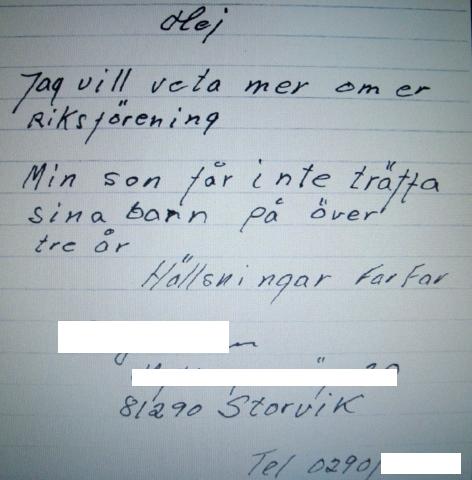 Hej
Jag vill veta mer om er
Riksförening
Min son får inte träffa
sina barn på över
tre år
Hällsningar Farfar
81290 Storvik
Tel 0290/